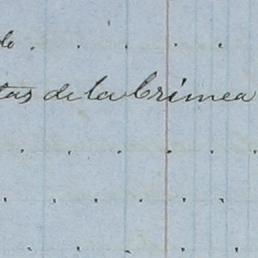 do
tas de la Crimea